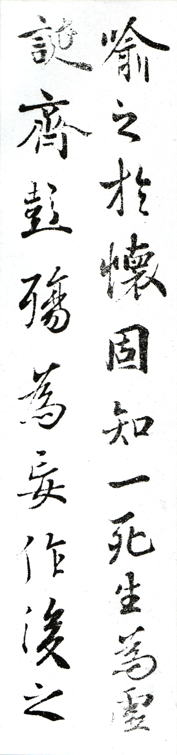 喻之於懷固知一死生為虛
誕齊彭殤為妄作後之